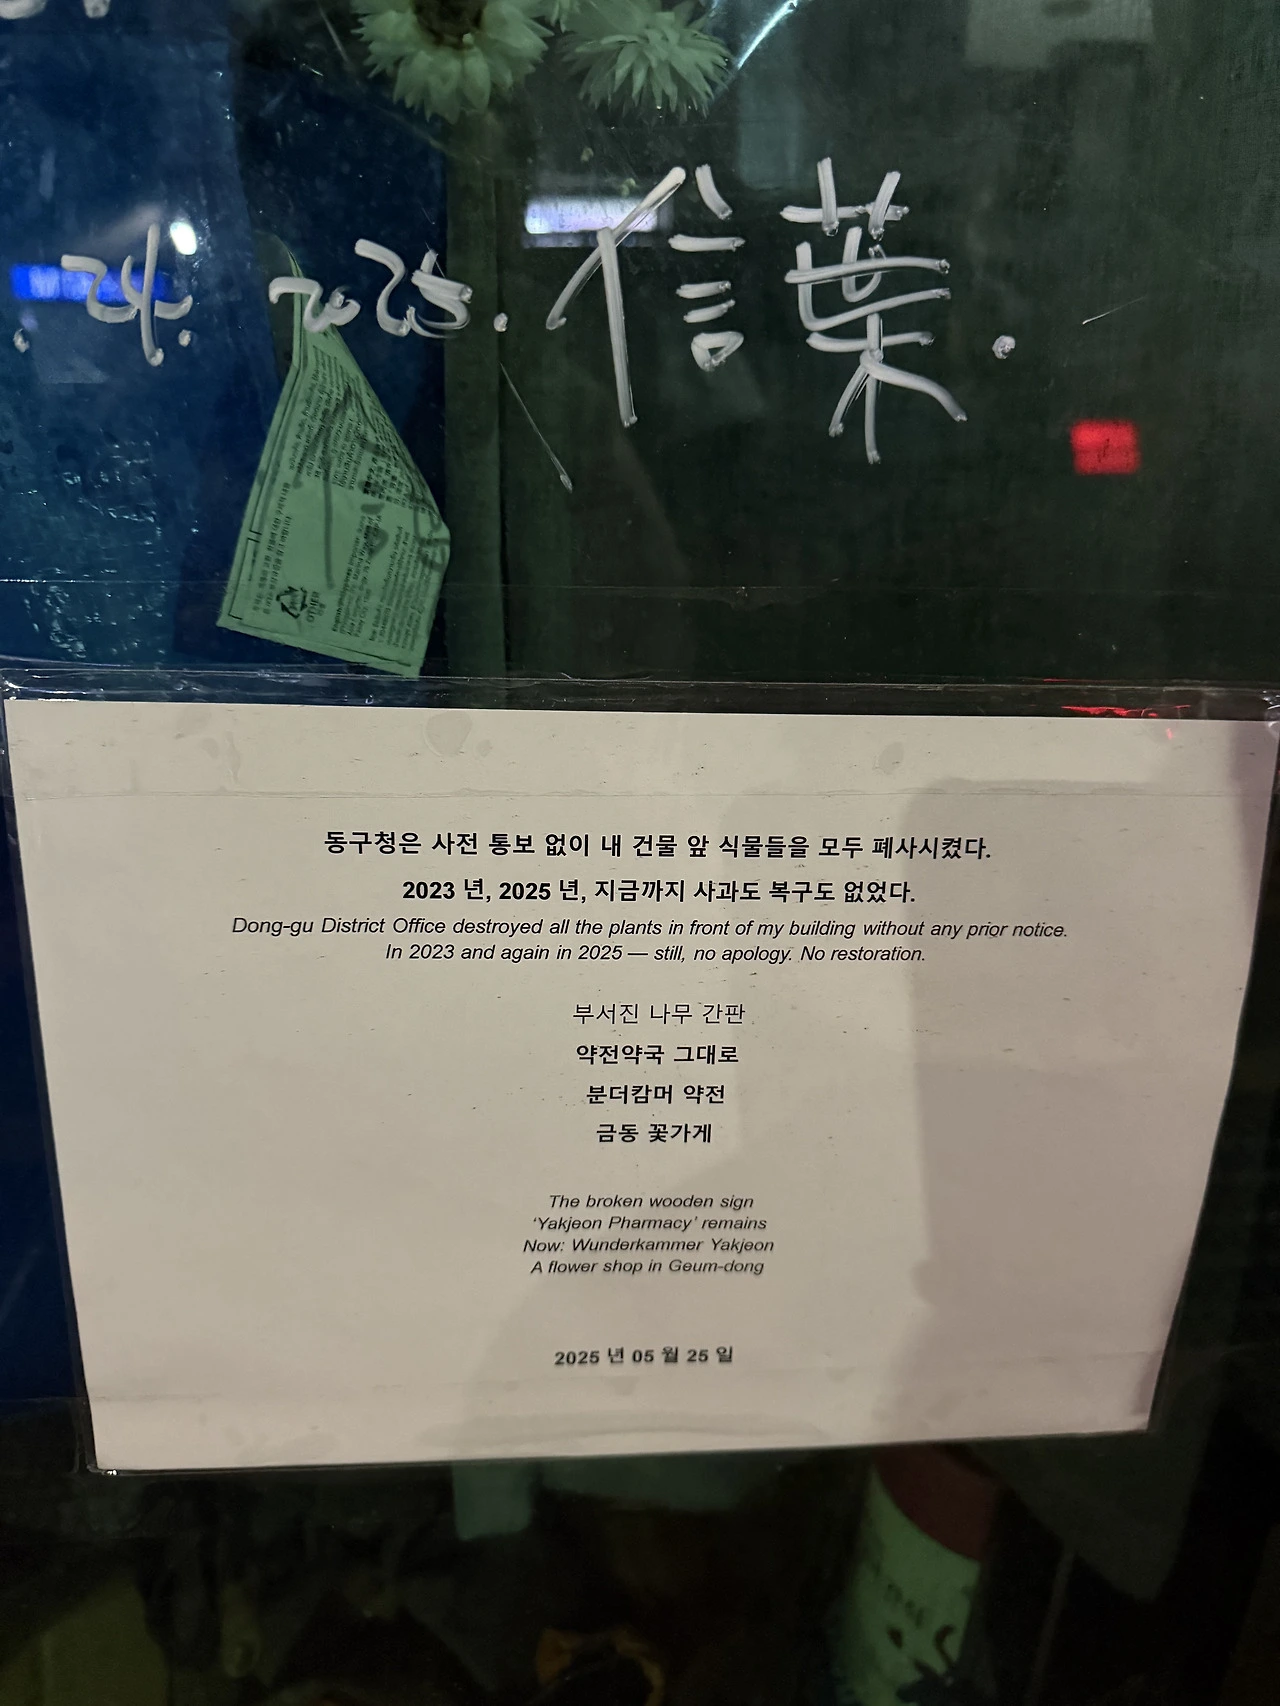 . 24. 2025. 信葉.
OTHER
동구청은 사전 통보 없이 내 건물 앞 식물들을 모두 폐사시켰다.
2023 년, 2025 년, 지금까지 사과도 복구도 없었다.
Dong-gu District Office destroyed all the plants in front of my building without any prior notice.
In 2023 and again in 2025 — still, no apology. No restoration.
부서진 나무 간판
약전약국 그대로
분더캄머 약전
금동 꽃가게
The broken wooden sign
‘Yakjeon Pharmacy’ remains
Now: Wunderkammer Yakjeon
A flower shop in Geum-dong
2025 년 05 월 25 일